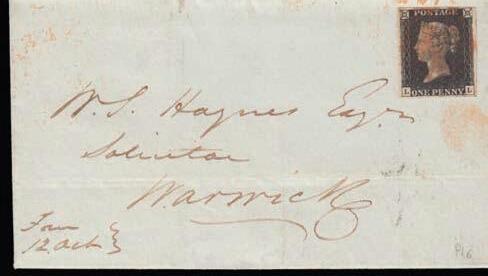 POSTAGE
L ONE PENNY L
W. S. Haynes Esqr.
Solicitor
Warwick
12 Oct
P16